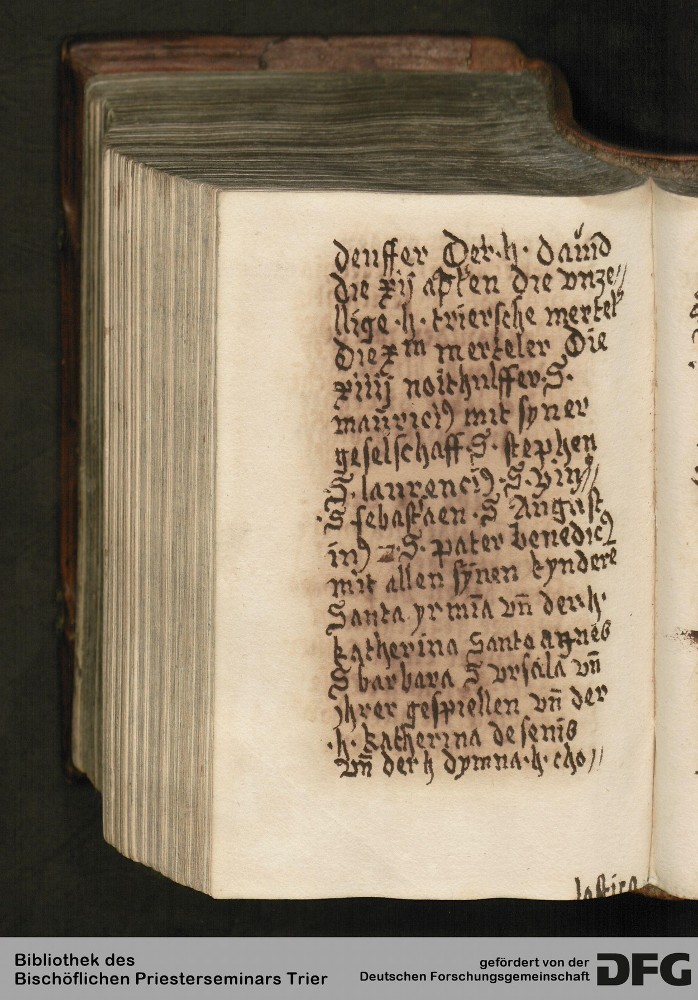 deuffer Der·h· dauid
die xij aptēn die vnze//
llige·h· triersche mertel'
Die xm merteler Die
xiiij noithulffer·S·
mauriciꝰ mit syner
geselschaff·S· stephen
S· laurenciꝰ·S·vin//
S sebastaen·S August
inꝰ z·S· pater benedicꝰ
mit allen synen kyndere
Santa yrmīa vn̄ der·h·
katherina Santa agnes
S barbara S vrsula vn̄
jhrer gespiellen vn̄ der
·h· katherina de senis
vn̄ der h dymna·h· cho//
lastica
Bibliothek des
Bischöflichen Priesterseminars Trier
gefördert von der
Deutschen Forschungsgemeinschaft
DFG